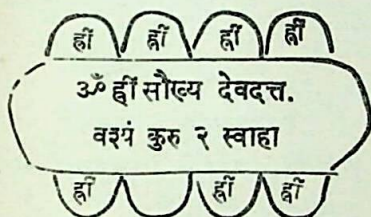 ह्रीं ह्रीं ह्रीं ह्रीं
ॐ ह्रीं सौख्य देवदत्त.
वश्यं कुरु २ स्वाहा
ह्रीं ह्रीं ह्रीं